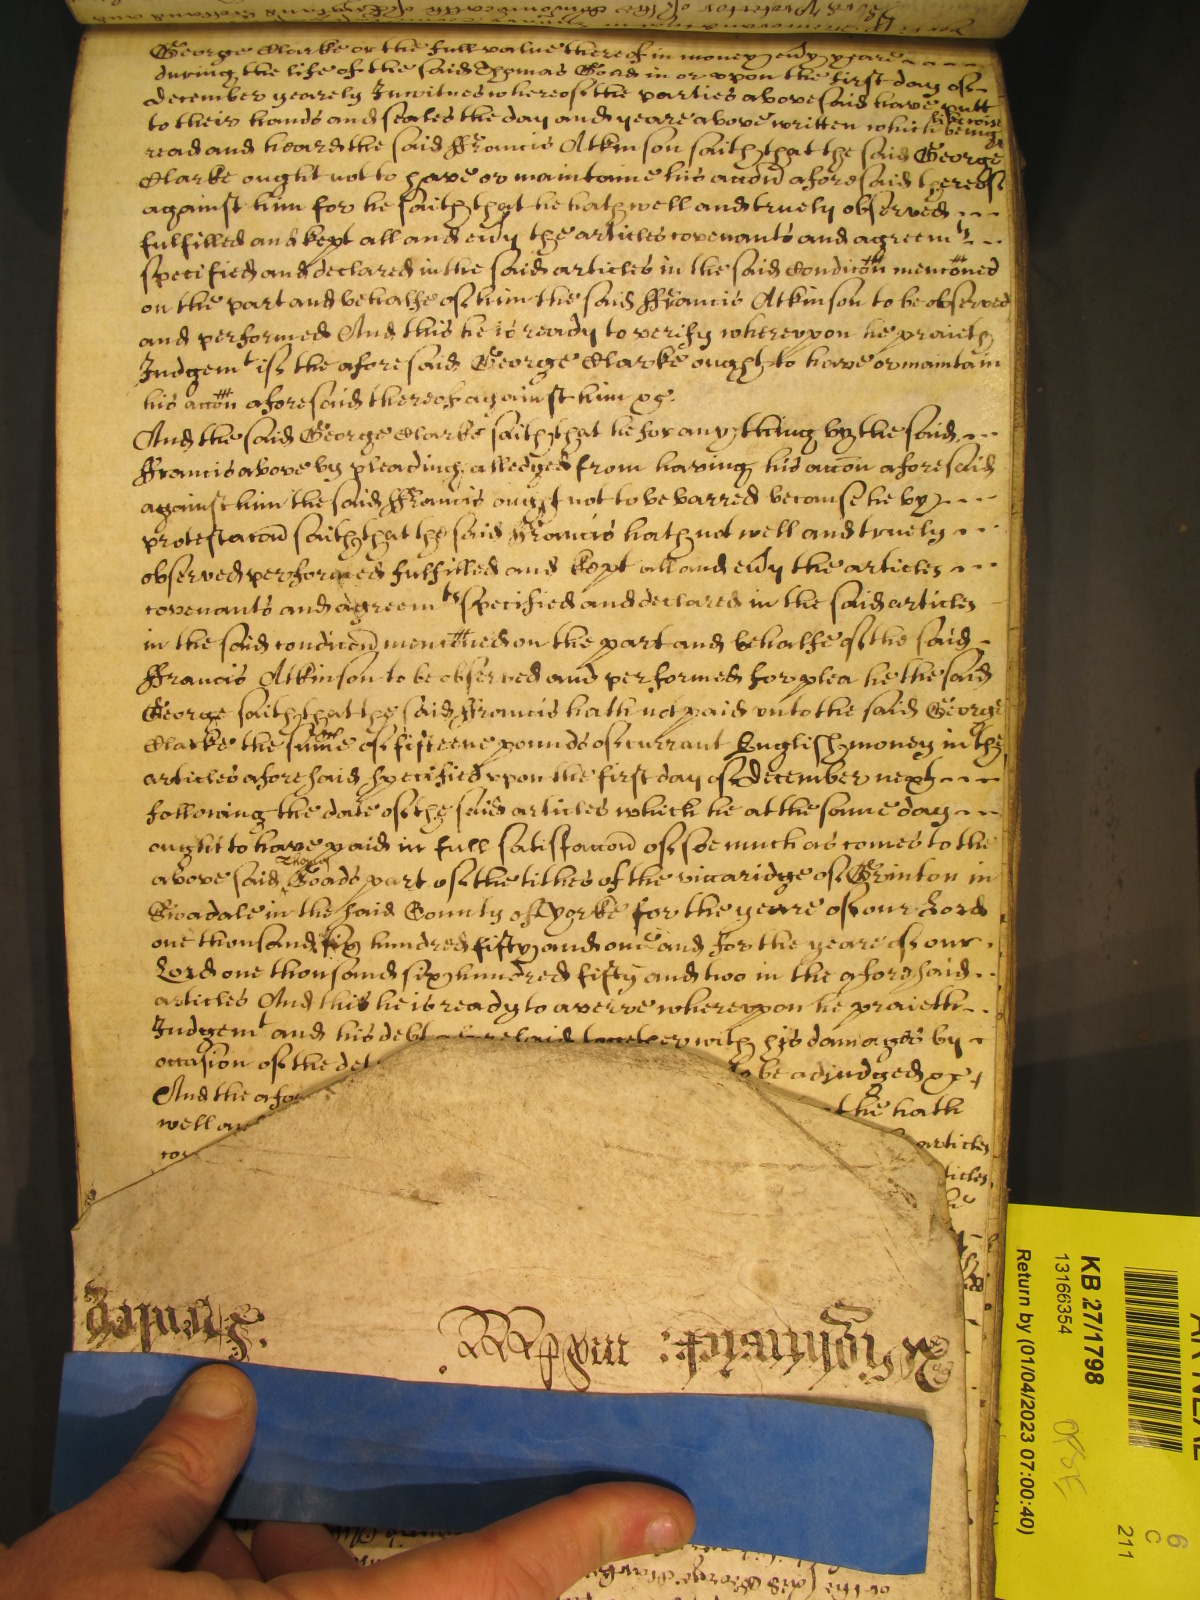 George Clarke or the full value thereof in money evy yeare
during the life of the said Thomas Goad in or vpon the first day of
December yearely In witnes whereof the parties abovesaid have putt
to their hands and seales the day and yeare above written which being
likewise
read and heard the said Ffrancis Atkinson saith that the said George
Clarke ought not to have or maintaine his accon aforesaid thereof
against him for he saith that he hath well and truely observed
fulfilled and kept all and evy the articles covenants and agreemts
specified and declared in the said articles in the said Condicon menconed
on the part and behalfe of him the said Ffrancis Atkinson to be observed
and performed And this he is ready to verify wherevpon he praieth
Judgemt if the aforesaid George Clarke ought to have or maintain
his accon aforesaid thereof against him &c.
And the said George Clarke saith that he for any thing by the said
Ffrancis above by pleading alledged from having his accon aforesaid
against him the said Ffrancis ought not to be barred because he by
protestacon saith that the said Ffrancis hath not well and truely
observed performed fulfilled and kept all and evy the articles
covenants and agreemts specified and declared in the said articles
in the said condicon menconed on the part and behalfe of the said
Ffrancis Atkinson to be observed and performed for plea he the said
George saith that the said Ffrancis hath not paid vnto the said George
Clarke the sume of fifteene pounds of currant English money in the
articles aforesaid specified vpon the first day of December next
following the date of the said articles which he at the same day
ought to have paid in full satisfaccon of soe much as comes to the
Thomas
above said Goads part of the tithes of the viccaridge of Grinton in
Swadale in the said County of Yorke for the yeare of our Lord
one thousand six hundred fifty and one and for the yeare of our
Lord one thousand six hundred fifty and two in the aforesaid
articles And this he is ready to averre wherevpon he praieth
Judgemt and his debt aforesaid together with his damages by
occasion of the det to be adjudged &c
And the afor the hath
well an articles
KB 27/1798
13166354
Return by (01/04/2023 07:00:40)
6
C
211